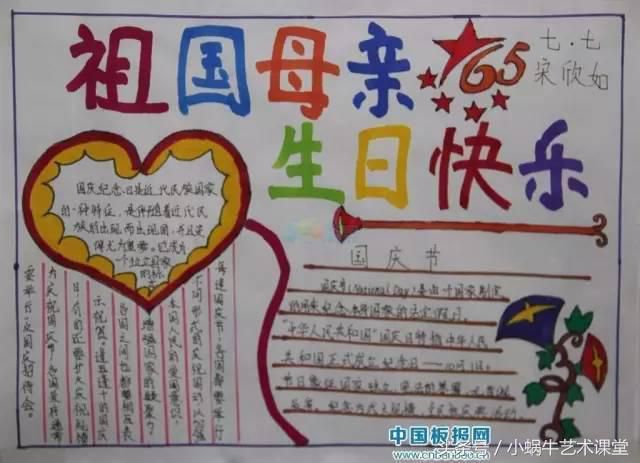 祖国母亲
65
七.七
宋欣如
生日快乐
国庆纪念日是近代民族国家
的一种特征,是伴随着近代民
族国家的出现而出现的,并且变
得尤为重要。它成为
一个独立国家
的标
每逢国庆节,各国都要举行
不同形式的庆祝活动,以加强
本国人民的爱国意识,
增强国家的凝聚力。
各国之间也都要相互表
示祝贺。逢五逢十的国庆
日,有的还要扩大庆祝规模
为庆祝国庆节,各国政府通常
要举行一次国庆招待会。
国庆节
国庆节(National Day)是由一个国家制定
的用来纪念国家
的法定假日。
"中华人民共和国"国庆日特指中华人民
共和国正式成立纪念日——10月1日。
中国板报网
www.cnbanbao.com
头条号／小蜗牛艺术课堂